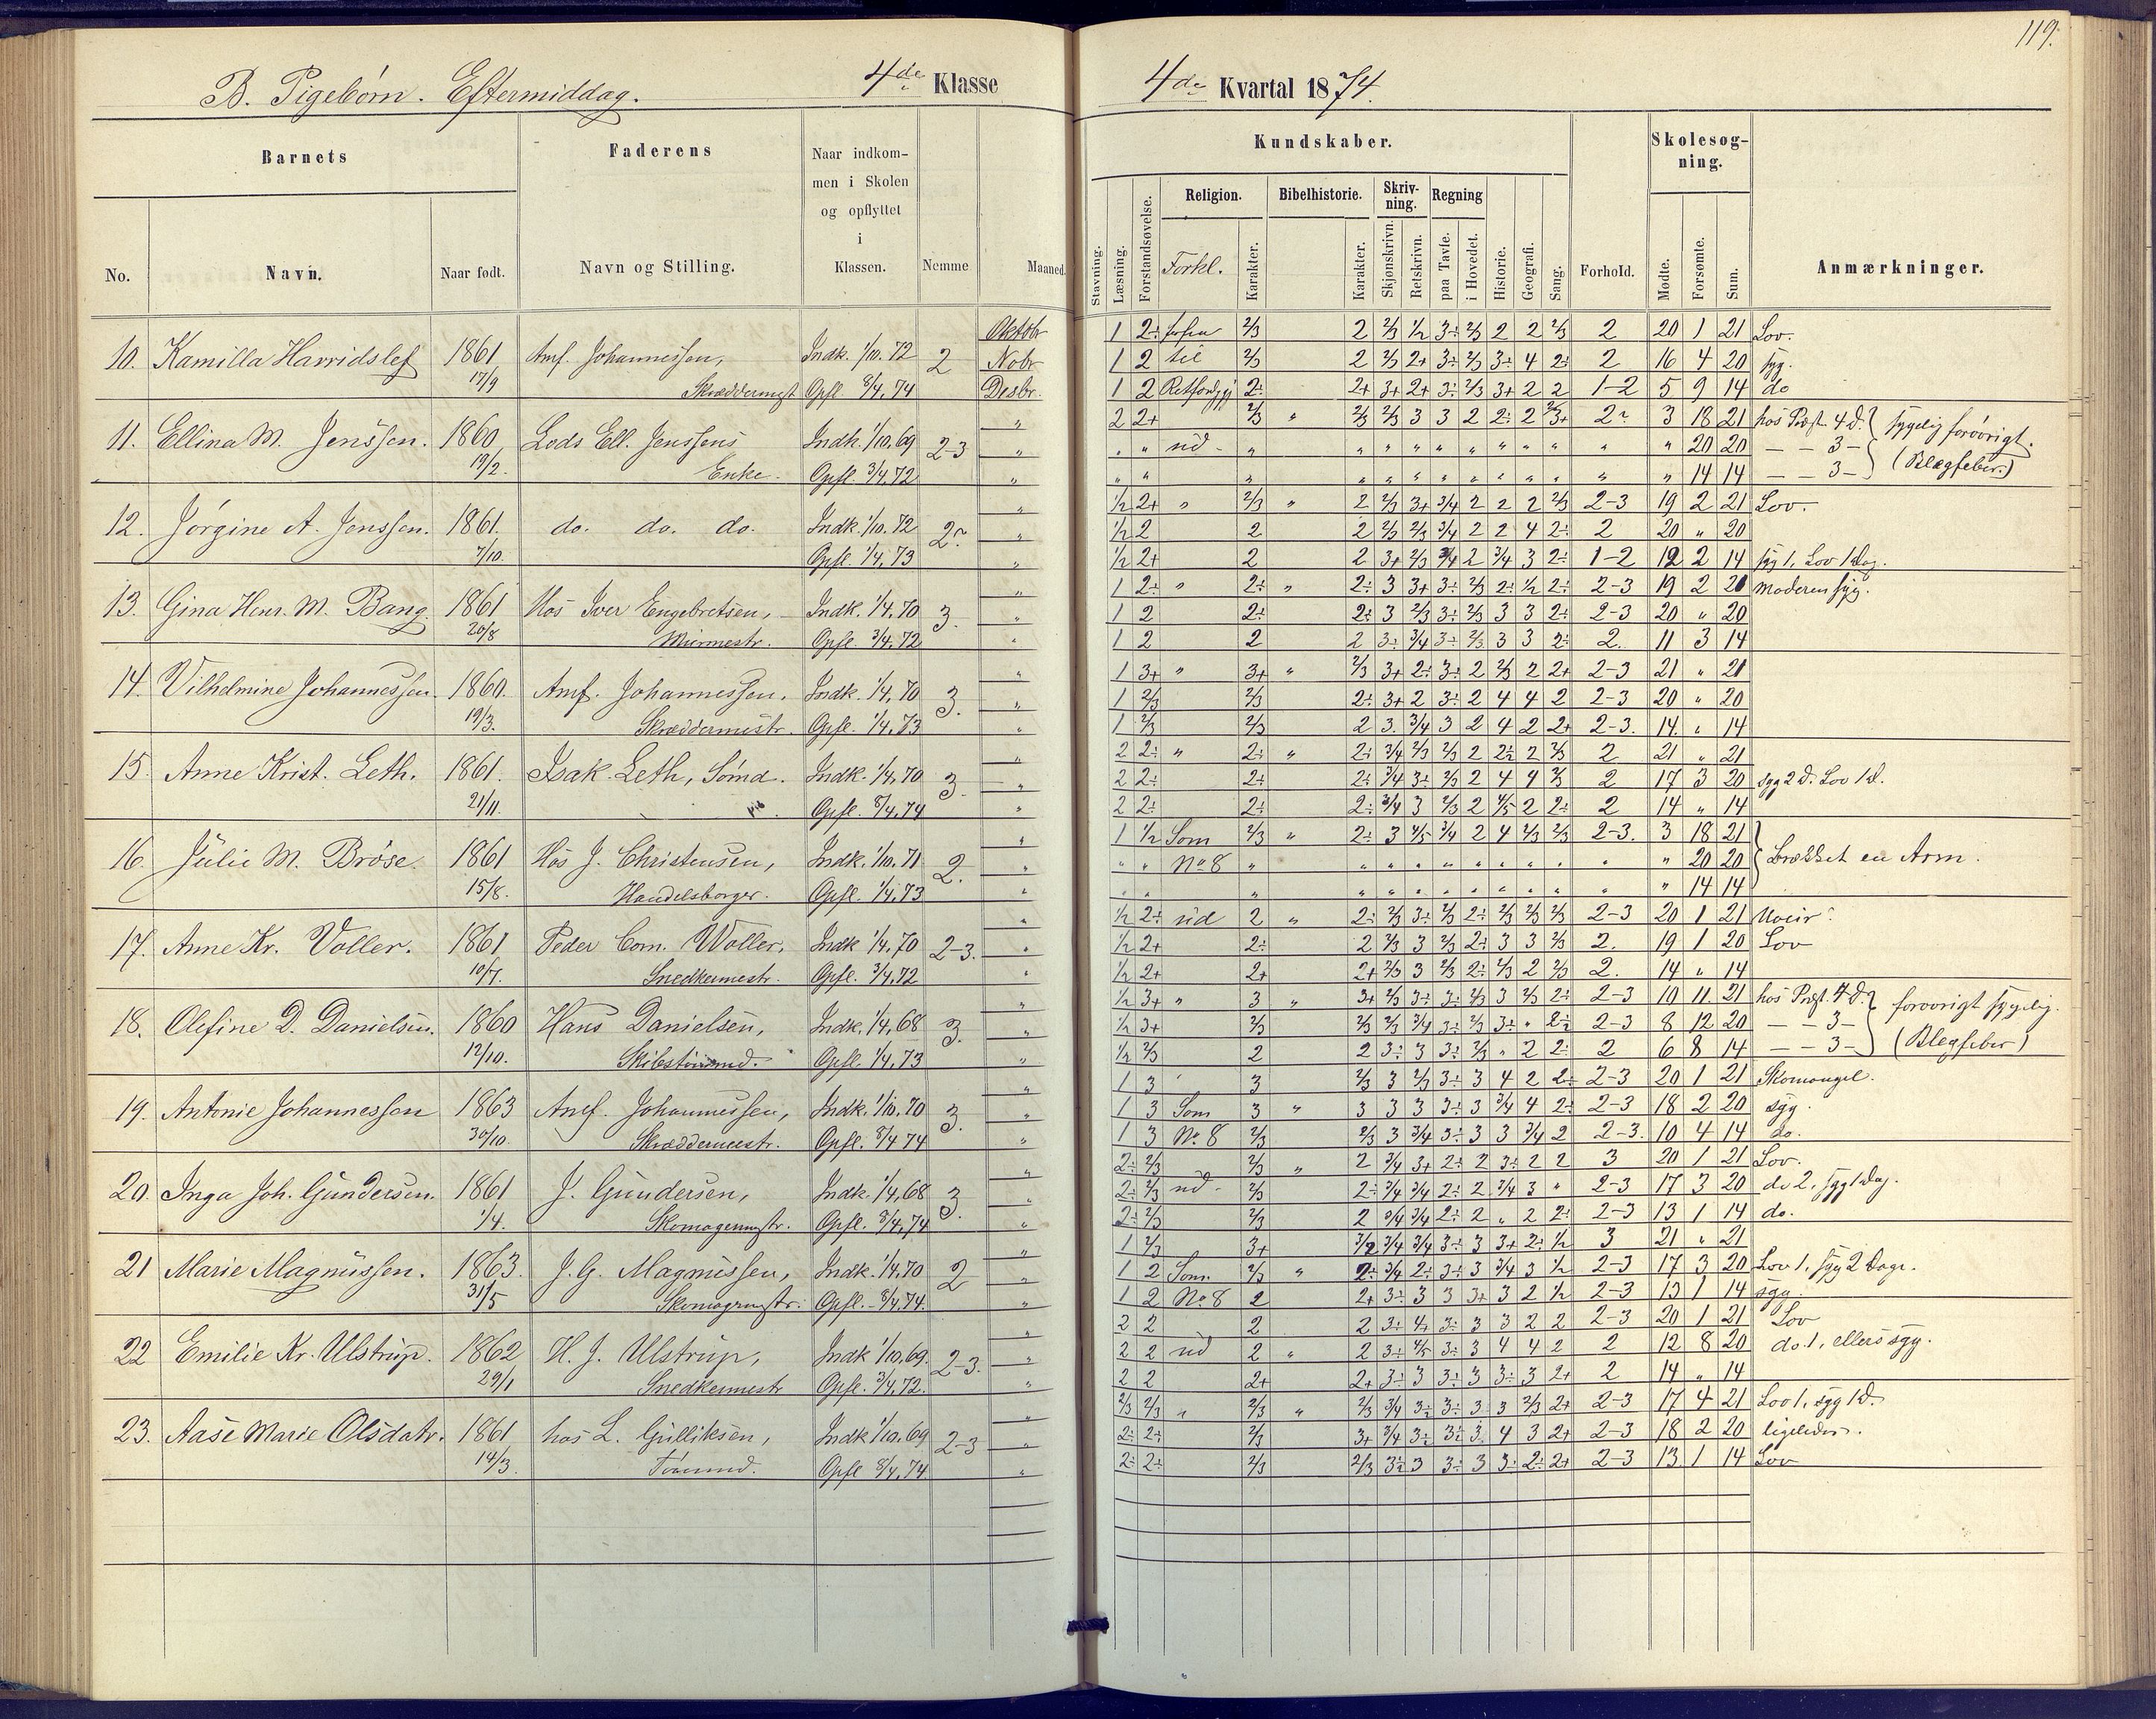 119.
B. Pigebørn. Eftermiddag. 4de Klasse
4de Kvartal 1874.
Barnets
Faderens
Naar indkom-
men i Skolen
og opflyttet
i
Klassen.
No. Navn. Naar født. Navn og Stilling. Nemme Maaned.
Kundskaber.
Skolesøg-
ning.
Religion. Bibelhistorie. Skriv-
ning. Regning
Stavning. Læsning. Forstandsøvelse. Forkl. Karakter. Karakter. Skjønskrivn. Retskrivn. paa Tavle. i Hovedet. Historie. Geografi. Sang. Forhold. Mødte. Forsømte. Sum. Anmærkninger.
Oktobr 1 2÷ forfra 2/3 2 2/3 1/2 3÷ 2/3 2 2 2/3 2 20 1 21 Lov.
10. Kamilla Harridslef 1861 Amf. Johannessen, Indk. 1/10. 72 2 Nobr 1 2 til 2/3 2 2/3 2+ 3÷ 2/3 3÷ 4 2÷ 2 16 4 20 syg.
17/9 Skræddermest Opfl. 8/4. 74 Desbr. 1 2 2÷ 2+ 3+ 2+ 3÷ 2/3 3+ 2 2 1-2 5 9 14 do
" 2 2+ 2/3 " 2/3 2/3 3 3 2 2÷ 2 3 18 21 hos Præst. 4 d. sygelig forøvrigt.
11. Ellina M. Jenssen. 1860 Lods Ell. Jenssens Indk. 1/10. 69 2-3 " " " ud - " " " " " " " " " " " 20 20 — — 3 —
19/2. Enke. Opfl. 3/4. 72 " " " " " " " " " " " " " " " 14 14 — — 3 — (Blegfeber.)
" 1/2 2+ " 2/3 " 2 2/3 3+ 3/4 2 2 2 2/3 2-3 19 2 21 Lov.
12. Jørgine A. Jenssen. 1861. do. do. do. Indk. 1/10. 72 " 1/2 2 2 2 2/3 2/3 3/4 2 2 4 2÷ 2 20 " 20
7/10. Opfl. 1/4. 73 " 1/2 2+ 2 2 3+ 2/3 3/4 2 3/4 3 2÷ 1-2 12 2 14 syg 1, Lov 1 Dag.
" 1 2÷ " 2÷ " 2÷ 3 3+ 3÷ 2/3 2÷ 1/2 2÷ 2-3 19 2 21 Moderen syg.
13. Gina Henr. M. Bang. 1861 Hos Iver Engebretsen, Indk. 1/4. 70 3. " 1 2 2÷ 2÷ 3 2/3 3÷ 2/3 3 3 2÷ 2-3 20 " 20
20/8 Murmestr. Opfl. 3/4. 72 " 1 2 2 2 3÷ 3/4 3÷ 2/3 3 3 2÷ 2. 11 3 14
" 1 3+ " 3+ " 2/3 3+ 2÷ 3÷ 2 2/3 2 2+ 2-3 21 " 21
14. Vilhelmine Johannessen. 1860. Amf. Johannessen. Indk. 1/4. 70 3. " 1 2/3 2/3 2÷ 3+ 2 3÷ 2 4 4 2 2-3 20 " 20
19/3. Skræddermestr. Opfl. 1/4. 73 " 1 2/3 2/3 2 3. 3/4 3 2 4 2 2+ 2-3. 14. " 14
" 2 2÷ " 2÷ " 2÷ 3/4 2/3 2/3 2 2÷ 2 2/3 2 21 " 21
15. Anne Krist. Leth. 1861. Isak Leth, Sømd. Indk. 1/4. 70 3. " 2 2÷ 2÷ 2÷ 3/4 3÷ 2/3 2 4 4 2/3 2 17 3 20 syg 2 d. Lov 1 d.
21/11. Opfl. 8/4. 74 " 2 2÷ 2÷ 2÷ 3/4 3 2/3 2 4/5 2 2÷ 2 14 " 14
" 1 1/2 Som 2/3 " 2÷ 3 4/5 3/4 2 4 2/3 2/3 2-3. 3 18 21
16. Julie M. Brøse 1861 Hos J. Christensen, Indk. 1/10. 71 2. " " " No 8 " " " " " " " " " " " 20 20 brækket en Arm.
15/8. Handelsborger. Opfl. 1/4. 73 " " " " " " " " " " " " " " " 14 14
" 1/2 2÷ ud 2 " 2÷ 2/3 3÷ 2/3 2÷ 2/3 2/3 2/3 2-3 20 1 21 Uveir
17. Anne Kr. Voller. 1861 Peder Com. Woller, Indk. 1/4. 70 2-3. " 1/2 2+ 2÷ 2 2/3 3 2/3 2÷ 3 3 2/3 2. 19 1 20 Lov
10/7. Snedkermestr. Opfl. 3/4. 72 " 1/2 2+ 2+ 2+ 2/3 3 2/3 2÷ 2/3 2 2/3 2. 14 " 14
" 1/2 3+ " 3 " 3+ 2/3 3÷ 3÷ 2/3 3 2/3 2÷ 2-3 10 11. 21 hos Præst. 4 d. forøvrigt sygelig.
18. Olefine D. Danielsen. 1860 Hans Danielsen, Indk. 1/4. 68 3. " 1/2 3+ 2/3 2/3 2/3 3/4 3÷ 2/3 3÷ " 2÷ 2-3 8 12 20 — — 3 —
12/10. Opfl. 1/4. 73 " 1/2 2/3 2 2 3÷ 3 3÷ 2/3 " 2 2÷ 2 6 8 14 — — 3 — (Blegfeber)
" 1 3 3 2/3 3 2/3 3÷ 3 4 2 2÷ 2-3 20 1 21 Skomangel.
19. Antonie Johannessen 1863 Amf. Johannessen, Indk. 1/10. 70 3. " 1 3 Som 3 " 3 3 3 3÷ 3 3/4 4 2÷ 2-3 18 2 20 syg.
30/10. Skræddermestr. Opfl. 8/4 74 " 1 3 No 8 2/3 2/3 3 3/4 3÷ 3 3 3/4 2 2-3. 10 4 14 do.
" 2÷ 2/3 2/3 " 2 3/4 3+ 2÷ 2 3÷ 2 2 3 20 1 21 Lov.
20. Inga Joh. Gundersen. 1861 J. Gundersen, Indk. 1/4. 68 3. " 2÷ 2/3 ud - 2/3 2÷ 3/4 3/4 2÷ 2 3/4 3 " 2-3 17 3 20 do 2, syg 1 Dag.
1/4. Skomagermstr. Opfl. 8/4. 74 " 2÷ 2/3 2/3 2 3/4 3/4 2÷ 2 " 2 2÷ 2-3 13 1 14 do.
" 1 2/3 3+ 3/2 3/4 3/4 3÷ 3 3+ 2÷ 1/2 3 21 " 21
21 Marie Magnussen. 1863. J. G. Magnussen, Indk. 1/4. 70 2 " 1 2 Som 2/3 " 2÷ 3/4 2÷ 3÷ 3 3/4 3 1/2 2-3 17 3 20 Lov 1, syg 2 Dage.
31/5 Skomagrmstr. Opfl. - 8/4. 74. " 1 2 No 8 2 2+ 3÷ 3 3 3+ 3 2 1/2 2-3 13 1 14 syg
" 2 2 2 2 3÷ 3÷ 3 3 2 2 2-3 20 1 21 Lov
22 Emilie Kr. Ulstrup. 1862 H. J. Ulstrup, Indk 1/10. 69. 2-3. " 2 2 ud 2 " 2 3÷ 4/5 3÷ 3 4 4 2 2 12 8 20 do. 1, ellers syg.
29/1 Snedkermestr Opfl. 3/4. 72. " 2 2 2+ 2+ 3÷ 3 3÷ 3 3÷ 3 2+ 2 14 " 14
" 2/3 2/3 " 2/3 " 2/3 3/4 3÷ 3÷ 3 3 2/3 2+ 2-3 17 4 21 Lov 1, syg 1 d.
23. Aase Marie Olsdatr. 1861 hos L. Gulliksen, Indk 1/10. 69 2-3 " 2÷ 2÷ 2/3 3+ 3/4 3÷ 3÷ 3 4 3 2+ 2-3 18 2 20 ligeledes.
14/3. Tømmd. Opfl 8/4. 74 " 2÷ 2÷ 2/3 2/3 3÷ 3 3÷ 3 3÷ 2÷ 2+ 2-3 13 1 14 Lov